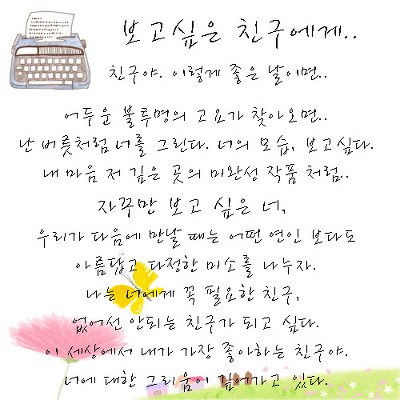 보고싶은 친구에게..
친구야. 이렇게 좋은 날이면..
어두운 불투명의 고요가 찾아오면..
난 버릇처럼 너를 그린다. 너의 모습, 보고싶다.
내 마음 저 깊은 곳의 미완성 작품 처럼..
자꾸만 보고 싶은 너,
우리가 다음에 만날 때는 어떤 연인 보다도
아름답고 다정한 미소를 나누자.
나는 너에게 꼭 필요한 친구,
없어선 안되는 친구가 되고 싶다.
이 세상에서 내가 가장 좋아하는 친구야.
너에 대한 그리움이 깊어가고 있다.